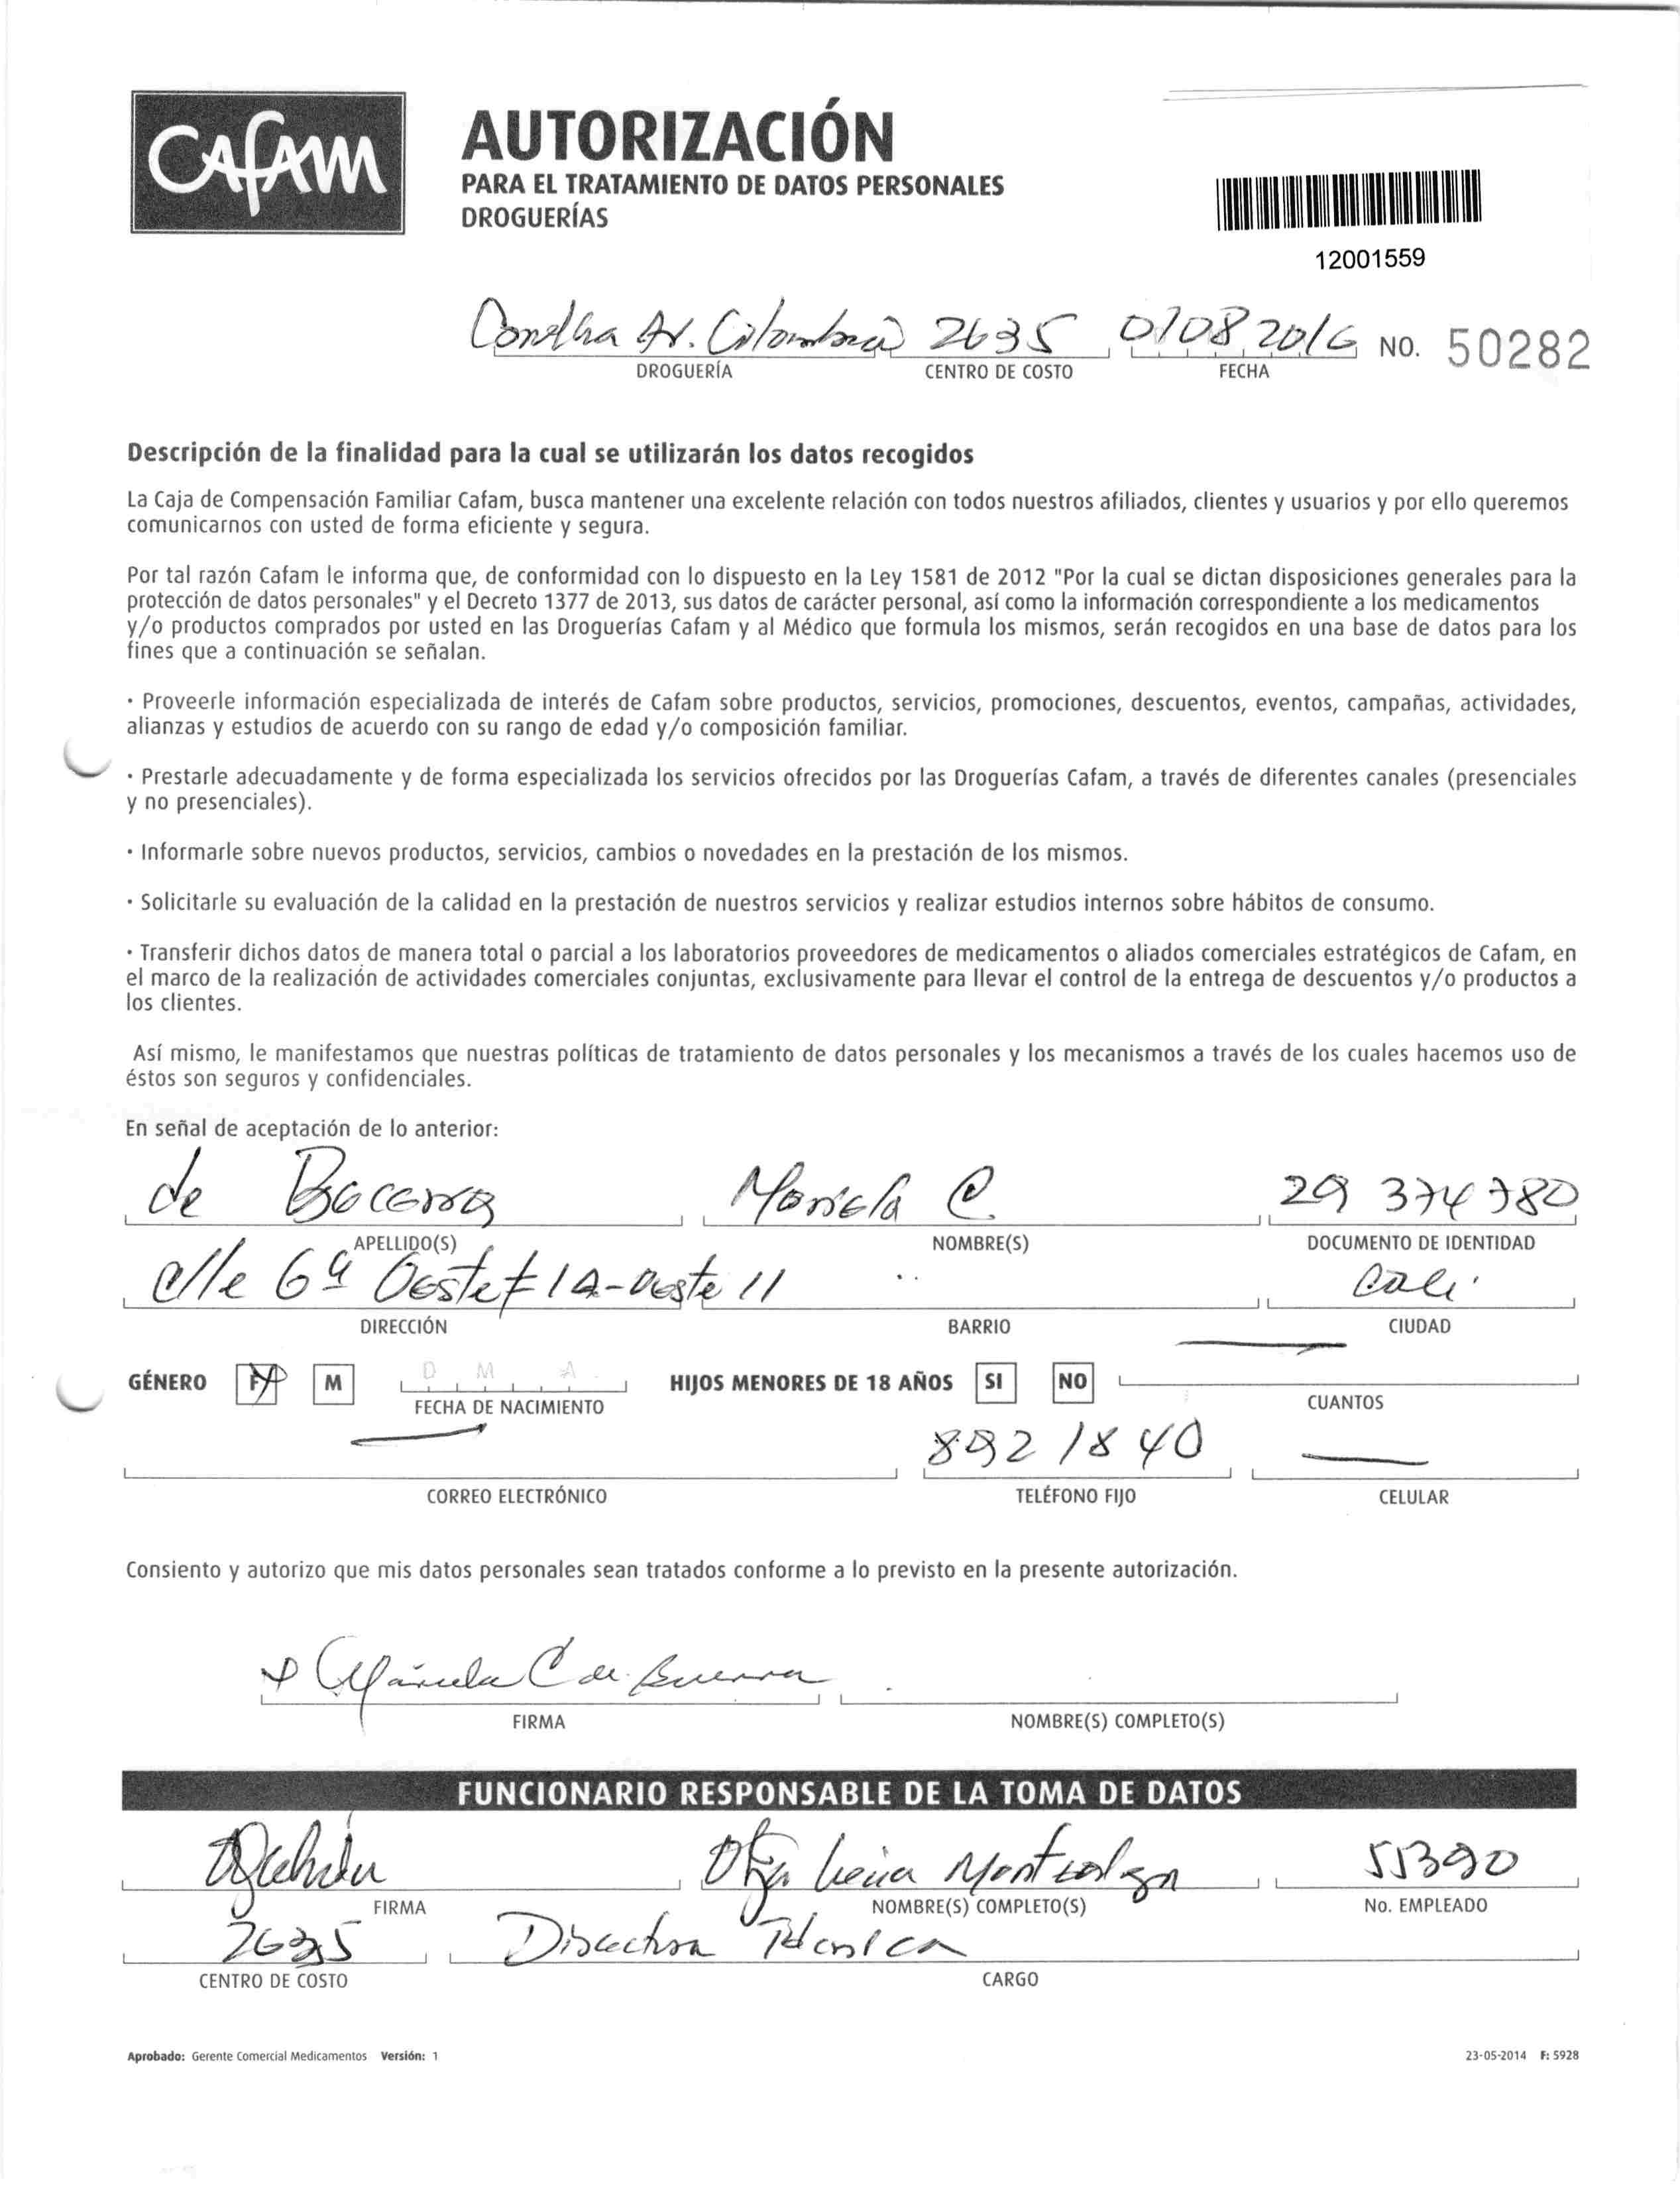 CAFAM
AUTORIZACIÓN
PARA EL TRATAMIENTO DE DATOS PERSONALES
DROGUERÍAS
12001559
Av. Colombia 2635 01082016 NO. 50282
DROGUERÍA CENTRO DE COSTO FECHA
Descripción de la finalidad para la cual se utilizarán los datos recogidos
La Caja de Compensación Familiar Cafam, busca mantener una excelente relación con todos nuestros afiliados, clientes y usuarios y por ello queremos
comunicarnos con usted de forma eficiente y segura.
Por tal razón Cafam le informa que, de conformidad con lo dispuesto en la Ley 1581 de 2012 "Por la cual se dictan disposiciones generales para la
protección de datos personales" y el Decreto 1377 de 2013, sus datos de carácter personal, así como la información correspondiente a los medicamentos
y/o productos comprados por usted en las Droguerías Cafam y al Médico que formula los mismos, serán recogidos en una base de datos para los
fines que a continuación se señalan.
· Proveerle información especializada de interés de Cafam sobre productos, servicios, promociones, descuentos, eventos, campañas, actividades,
alianzas y estudios de acuerdo con su rango de edad y/o composición familiar.
· Prestarle adecuadamente y de forma especializada los servicios ofrecidos por las Droguerías Cafam, a través de diferentes canales (presenciales
y no presenciales).
· Informarle sobre nuevos productos, servicios, cambios o novedades en la prestación de los mismos.
· Solicitarle su evaluación de la calidad en la prestación de nuestros servicios y realizar estudios internos sobre hábitos de consumo.
· Transferir dichos datos de manera total o parcial a los laboratorios proveedores de medicamentos o aliados comerciales estratégicos de Cafam, en
el marco de la realización de actividades comerciales conjuntas, exclusivamente para llevar el control de la entrega de descuentos y/o productos a
los clientes.
Así mismo, le manifestamos que nuestras políticas de tratamiento de datos personales y los mecanismos a través de los cuales hacemos uso de
éstos son seguros y confidenciales.
En señal de aceptación de lo anterior:
de Becerra Mariela C. 29 374780
APELLIDO(S) NOMBRE(S) DOCUMENTO DE IDENTIDAD
Clle 6ª Oeste # 1A-Oeste 11 Cali
DIRECCIÓN BARRIO CIUDAD
GÉNERO F M D M A HIJOS MENORES DE 18 AÑOS SI NO
FECHA DE NACIMIENTO CUANTOS
8921840
CORREO ELECTRÓNICO TELÉFONO FIJO CELULAR
Consiento y autorizo que mis datos personales sean tratados conforme a lo previsto en la presente autorización.
Mariela C de Becerra
FIRMA NOMBRE(S) COMPLETO(S)
FUNCIONARIO RESPONSABLE DE LA TOMA DE DATOS
Olga 55390
FIRMA NOMBRE(S) COMPLETO(S) No. EMPLEADO
2635 Directora Técnica
CENTRO DE COSTO CARGO
Aprobado: Gerente Comercial Medicamentos Versión: 1 23-05-2014 F: 5928